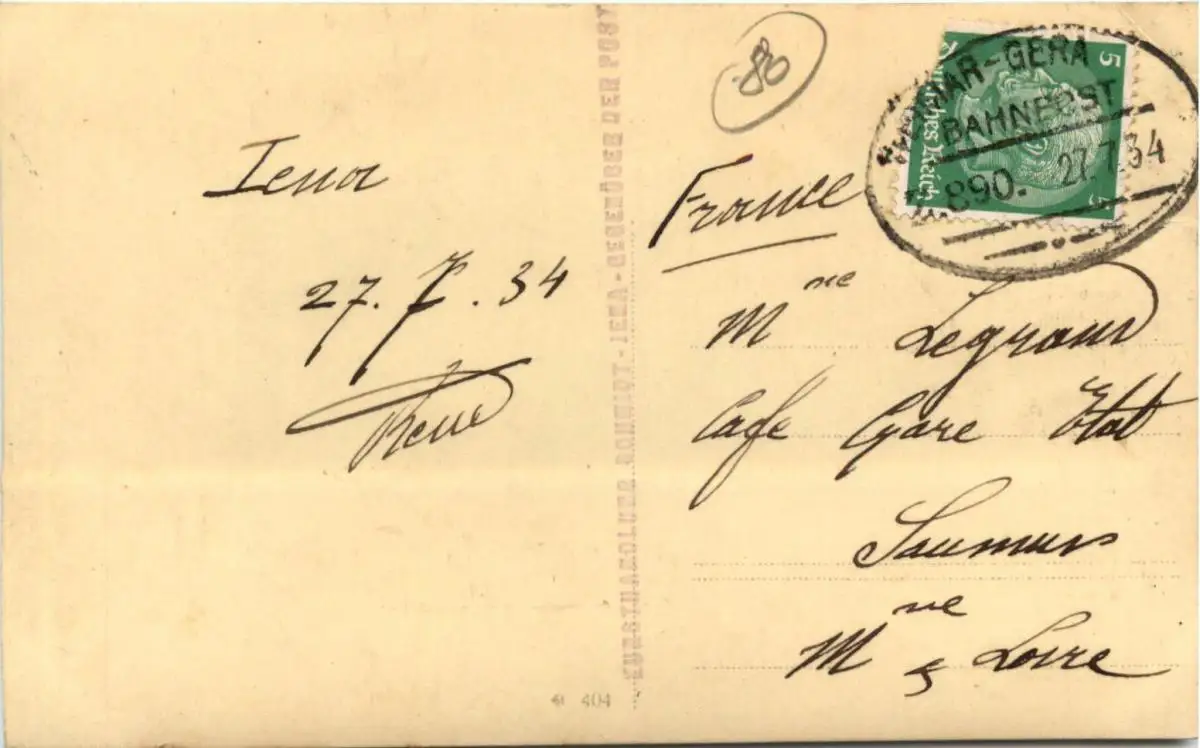 Iena
27. 7. 34
René
KUNSTHANDLUNG SCHMIDT-JENA-GEGENÜBER DER POST
404
86
5
Deutsches Reich
5
WEIMAR-GERA
BAHNPOST
Z. 890. 27.7.34
France
Mme Legrand
Café Gare Etat
Saumur
Mne & Loire